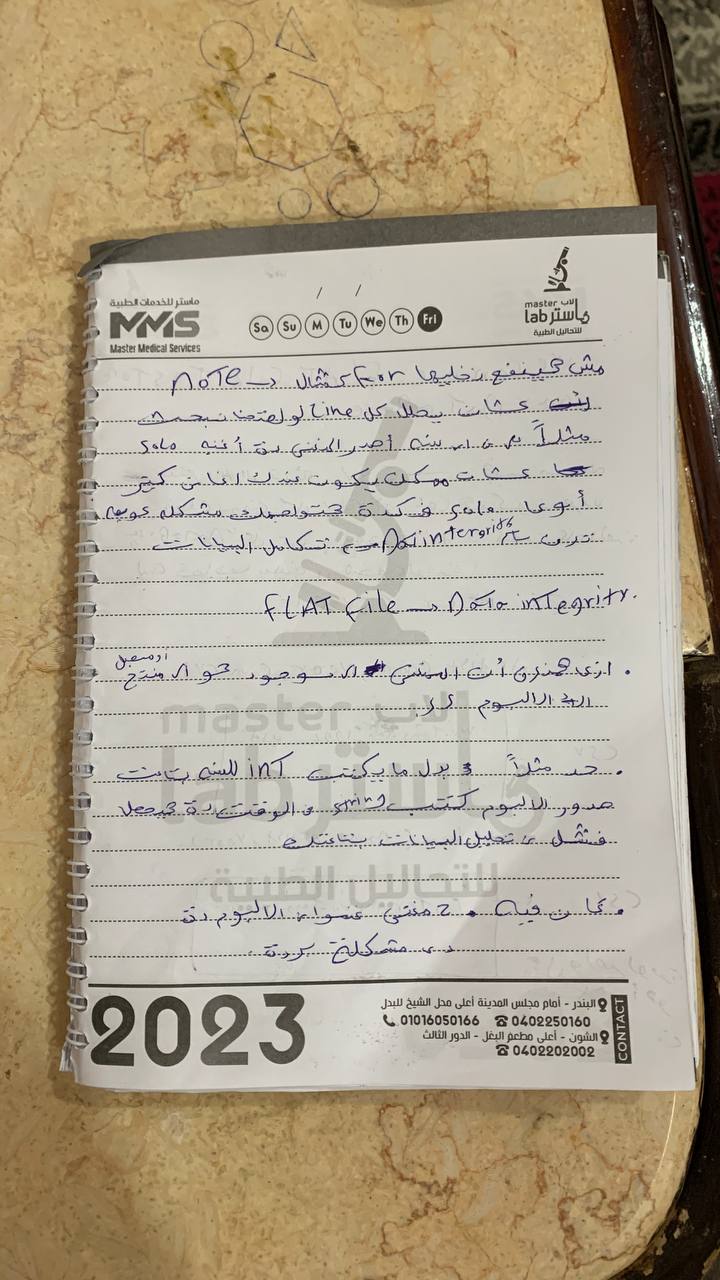 ماستر للخدمات الطبية
MMS
Master Medical Services
/ /
Sa Su M Tu We Th Fri
master لاب
lab ماستر
للتحاليل الطبية
NOTE → كمثال For مش هينفع نخليها
عشان يحلل كل line لو احنا بنبحث
مثلاً في اي سنه أصدر المغني دة أغنيه solo
عشان ممكن يكون عندك اغاني كتير
أنوعا solo ف كدة هتواجهك مشكله عويصه
Data intergrity → تكامل البيانات
FLAT File → Data integrity.
. ازاى هنعرف أن المغنى الموجود هو المنتج
الالبوم ؟؟
. حد مثلاً بدل ما يكتب int للسنه بتاعت
صدور الالبوم كتب string ف الوقت دة هيحصل
فشل ف تحليل البيانات بتاعتك
. كان فيه 2 مغنى عنوان الالبوم دة
دى مشكلة بردة
master لاب
lab ماستر
للتحاليل الطبية
2023
البندر - أمام مجلس المدينة أعلى محل الشيخ للبدل
01016050166 0402250160
الشون - أعلى مطعم البغل - الدور الثالث
0402202002
CONTACT